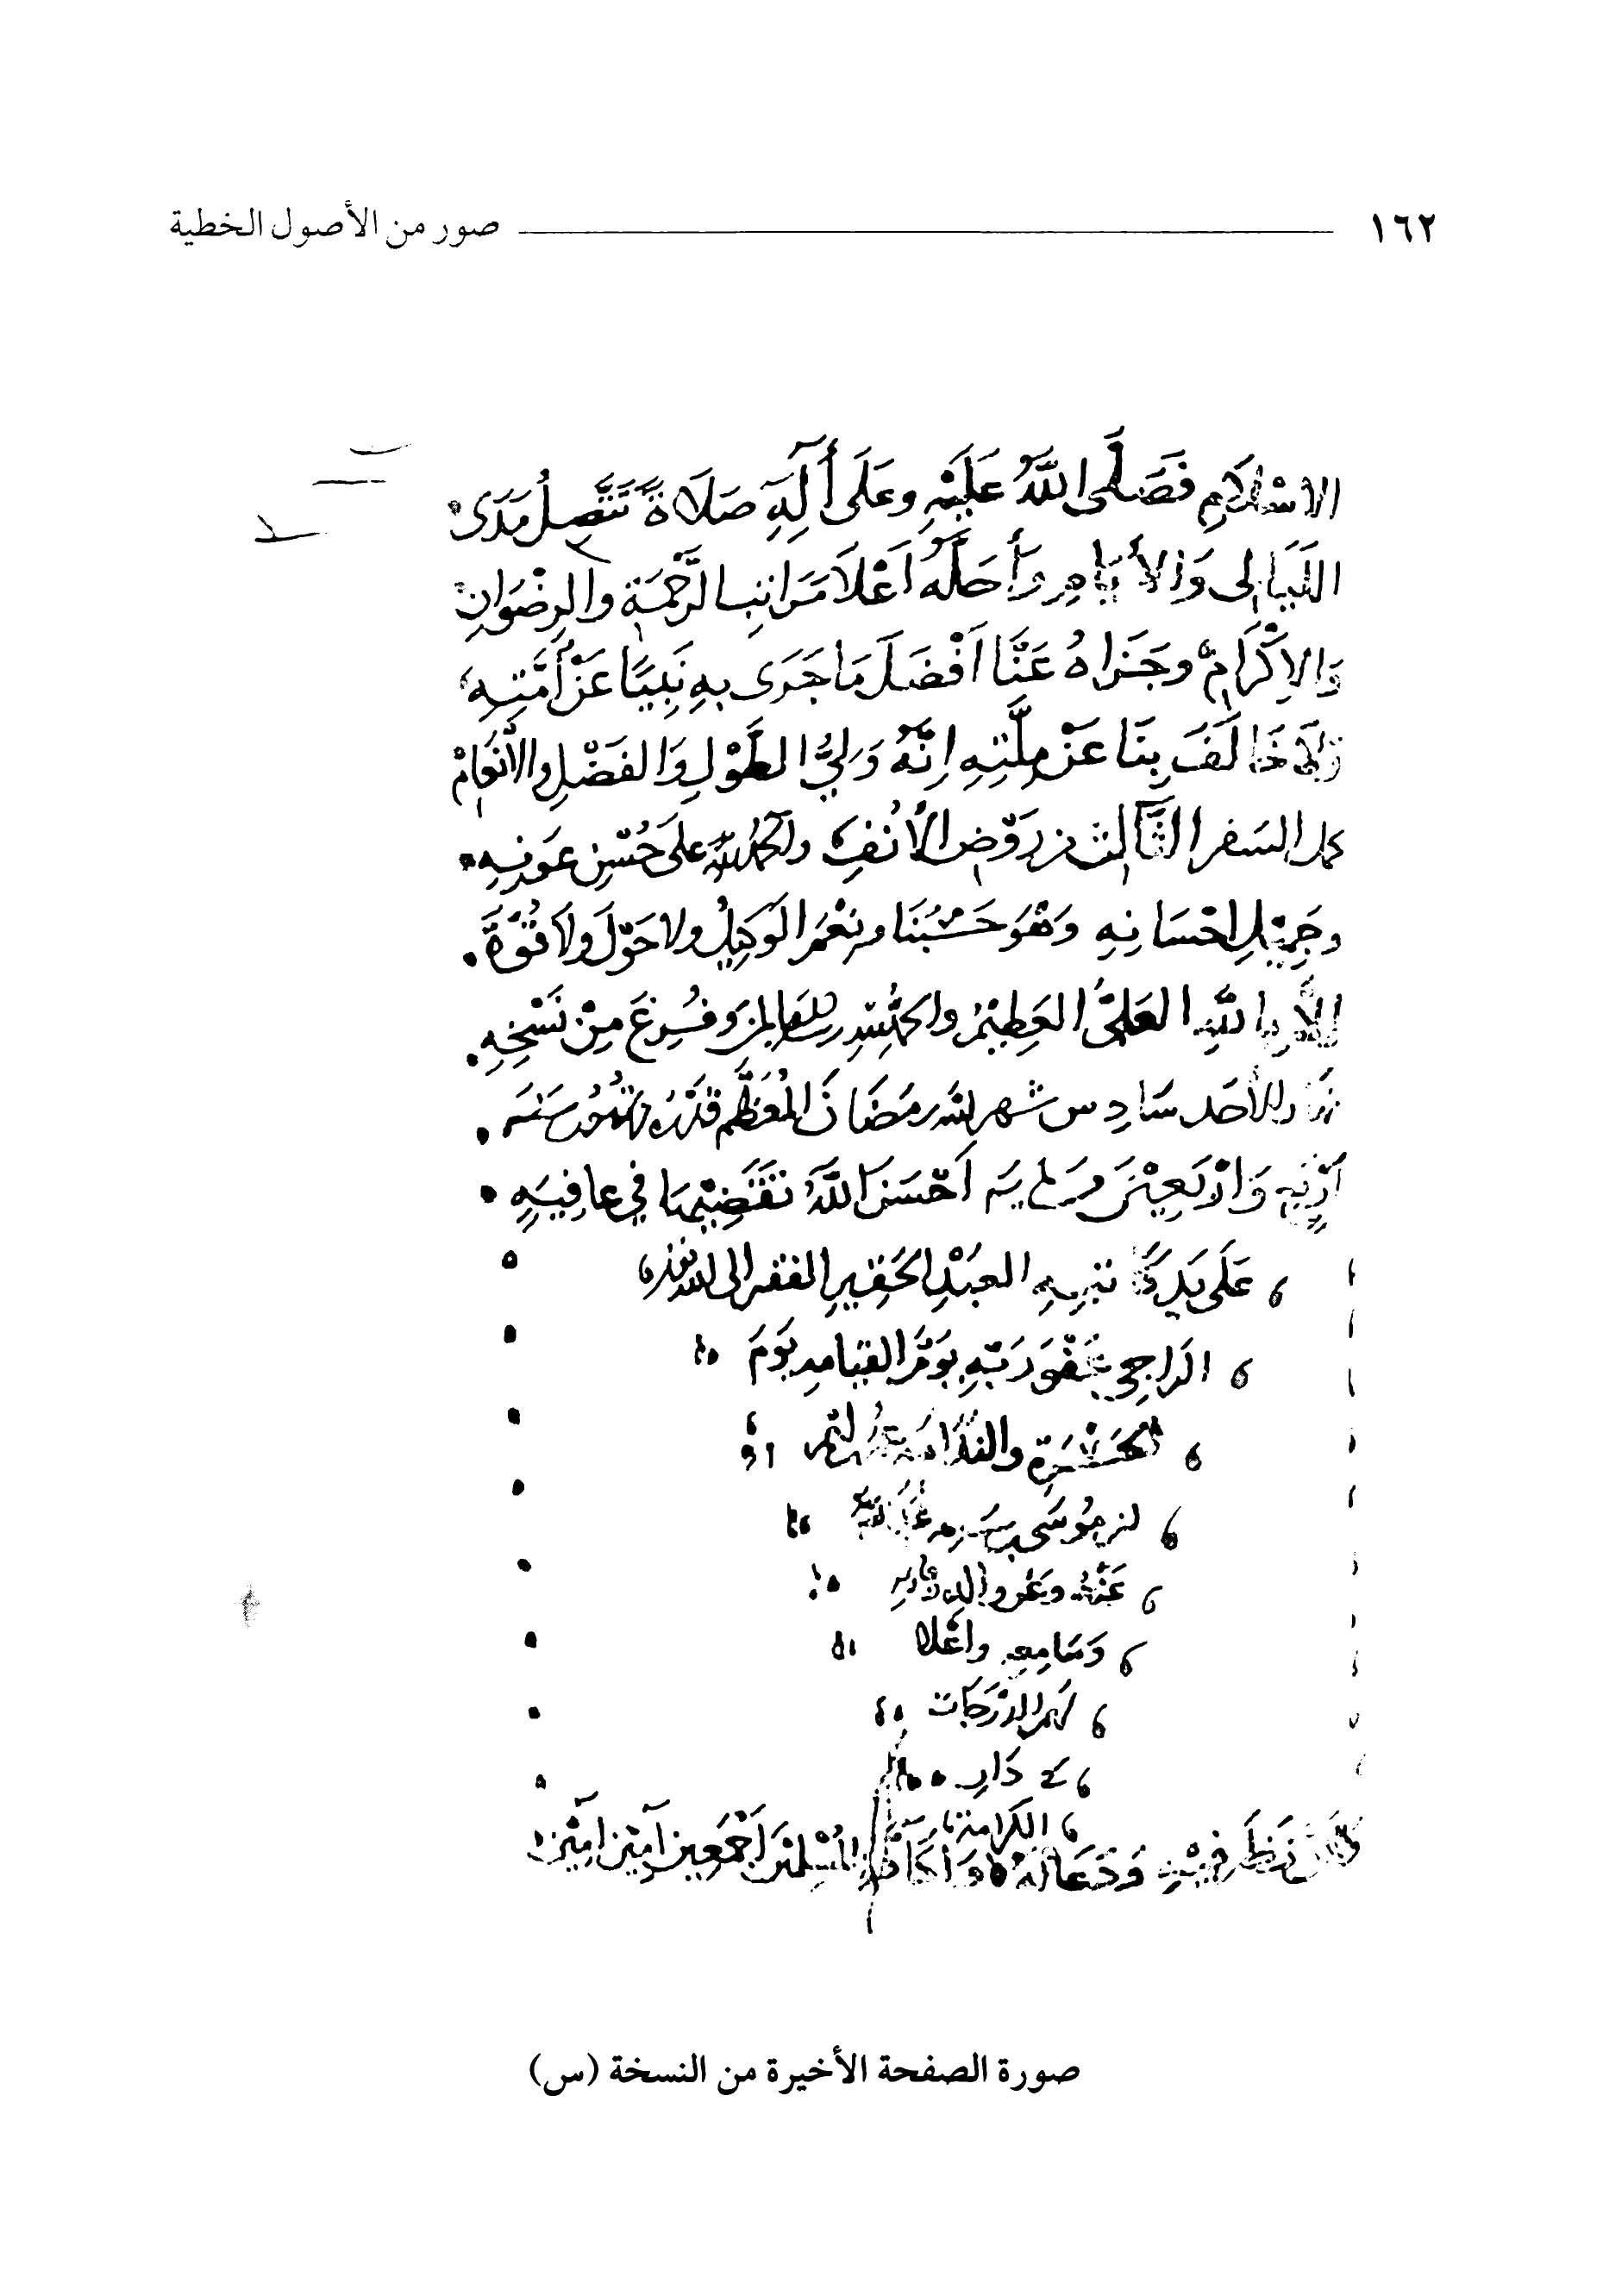 ١٦٢ صور من الأصول الخطية
الاسْلَامِ فَصَلَّى اللَّهُ عَلَيْهِ وعَلَى أَلِهِ صَلَاةً تَتَّصِلُ مَدَى
اللَيَالِى وَالأَيَّامِ وَأَحَلَّهُ اَعْلَا مَرَاتِبِ الرَّحْمَةِ والرِضْوَانِ
وَالاِكْرَامِ وجَزَاهُ عَنَّا اَفْضَلَ مَا جَزَى بِهِ نَبِيًا عَنْ أُمَّتِهِ
وَلَا خَالَفَ بِنَا عَنْ مِلَّتِهِ اِنَّهُ وَلِيُّ الطَّوْلِ وَالفَضْلِ والأَنْعَامْ
كمل السفر الثَّالِث من رَوْضِ الأُنُفِ والحمد لله علَى حُسْنِ عَوْنِهِ
وجَزِيْلِ اِحْسَانِهِ وَهْوَ حَسْبُنَا ونِعْمَ الوَكِيْلُ ولا حَوْلَ ولَا قُوَّةَ
إلَّا بِاللهِ العَلِىُّ العَظِيْمُ والحمد لله رب العالمين وفُرِغَ مِنْ نَسْخِهِ
نهار الأَحَد سَادِس شهر الله رمَضَانَ المُعَظَّم
وَارْبَعِيْنَ اَحْسَنَ اللَّهُ تَقَضِّيْهَا في عافِيَةٍ
عَلَى يَدِ كَاتِبِهِ العَبْدِ الحَقِيرِ الفقير الى الله
الرَاجِي عَفْوَ رَبِّهِ يَوْمَ القِيَامه يَوْمَ
الحَسْرَةِ والنَّدَامه
بن مُوسَى عَفَا الله
عَنْهُ وعَن والديه
وَسَامِعِهِ واَعْلا
لهم الدَّرَجَات
في دَارِ
الكَرَامة
ولمن نَظَرَ فِيْهِ وَدَعَا لَهُ المُسْلِمْيَن اَجْمَعِين آمِيْن امِيْن
صورة الصفحة الأخيرة من النسخة (س)